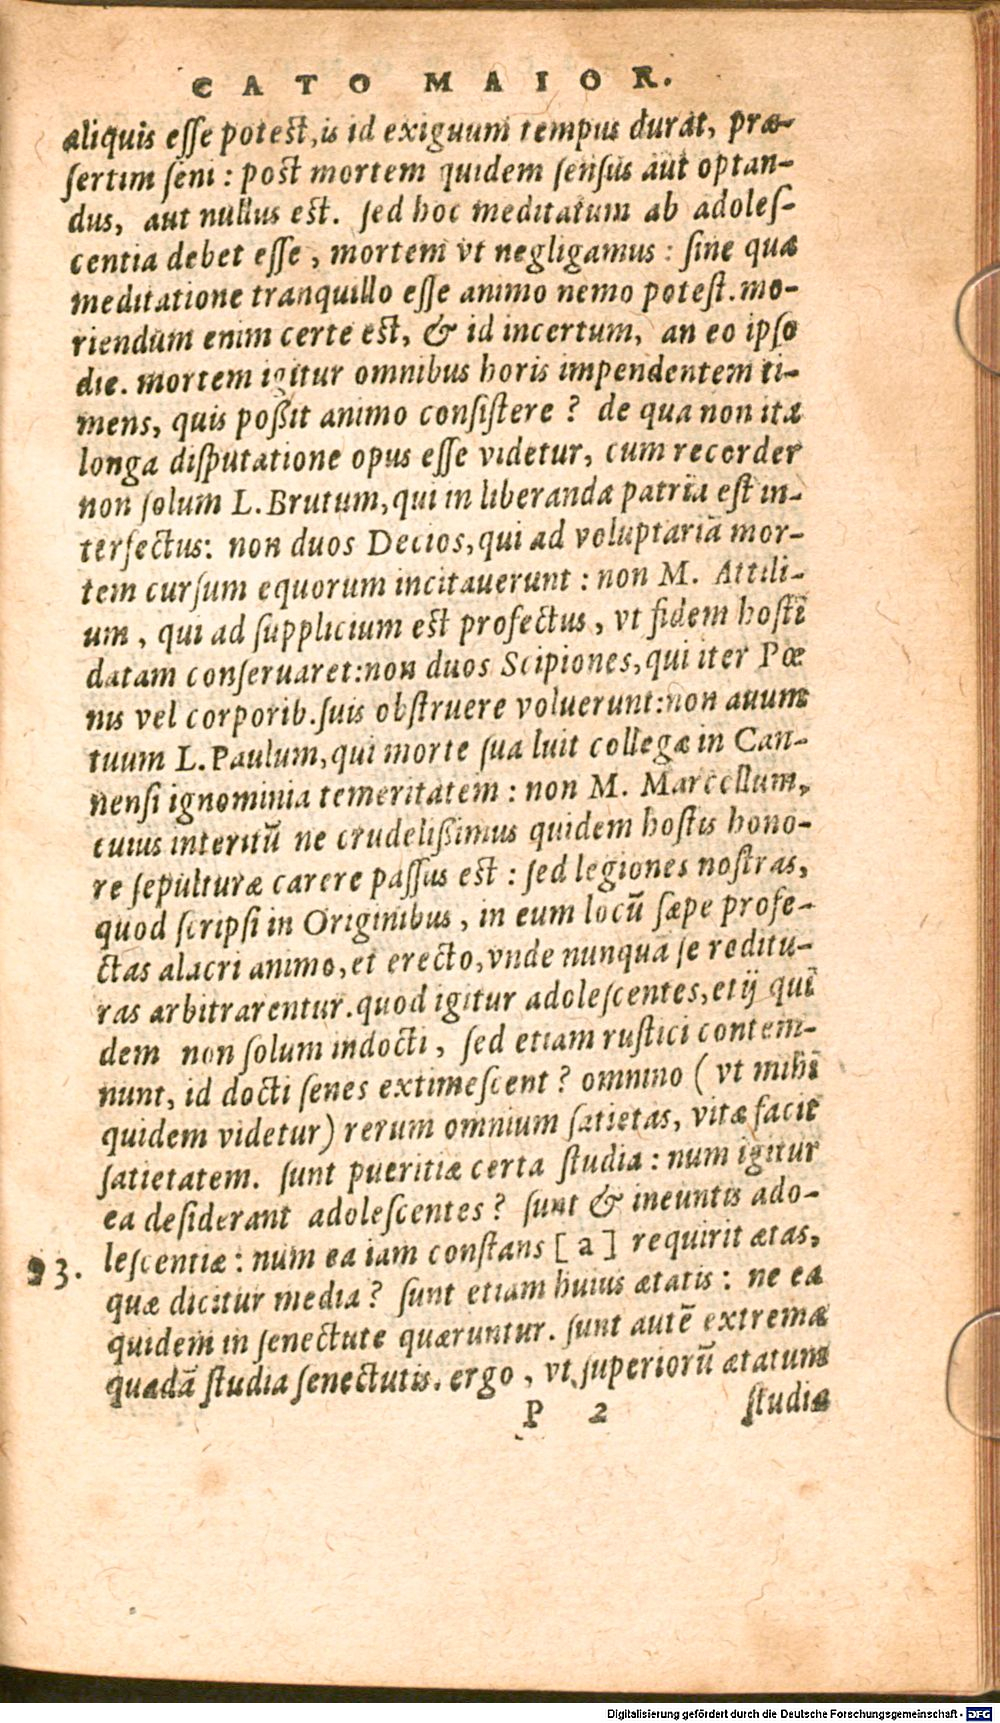 CATO MAIOR.
aliquis esse potest, is id exiguum tempus durat, præ-
sertim seni : post mortem quidem sensus aut optan-
dus, aut nullus est. sed hoc meditatum ab adoles-
centia debet esse, mortem vt negligamus : sine qua
meditatione tranquillo esse animo nemo potest. mo-
riendum enim certe est, & id incertum, an eo ipso
die. mortem igitur omnibus horis impendentem ti-
mens, quis poßit animo consistere ? de qua non ita
longa disputatione opus esse videtur, cum recorder
non solum L. Brutum, qui in liberanda patria est in-
terfectus: non duos Decios, qui ad voluptariã mor-
tem cursum equorum incitauerunt : non M. Attili-
um, qui ad supplicium est profectus, vt fidem hosti
datam conseruaret: non duos Scipiones, qui iter Pœ
nis vel corporib. suis obstruere voluerunt: non auum
tuum L. Paulum, qui morte sua luit collegæ in Can-
nensi ignominia temeritatem : non M. Marcellum,
cuius interitũ ne crudelißimus quidem hostis hono-
re sepulturæ carere passus est : sed legiones nostras,
quod scripsi in Originibus, in eum locũ sæpe profe-
ctas alacri animo, et erecto, vnde nunquã se reditu-
ras arbitrarentur. quod igitur adolescentes, et ij qui
dem non solum indocti, sed etiam rustici contem-
nunt, id docti senes extimescent ? omnino ( vt mihi
quidem videtur) rerum omnium satietas, vitæ facit
satietatem. sunt pueritiæ certa studia : num igitur
ea desiderant adolescentes ? sunt & ineuntis ado-
93. lescentiæ : num ea iam constans [ a ] requirit ætas,
quæ dicitur media ? sunt etiam huius ætatis : ne ea
quidem in senectute quæruntur. sunt autẽ extremæ
quædã studia senectutis. ergo, vt superiorũ ætatum
P 2 studia
Digitalisierung gefördert durch die Deutsche Forschungsgemeinschaft - DFG